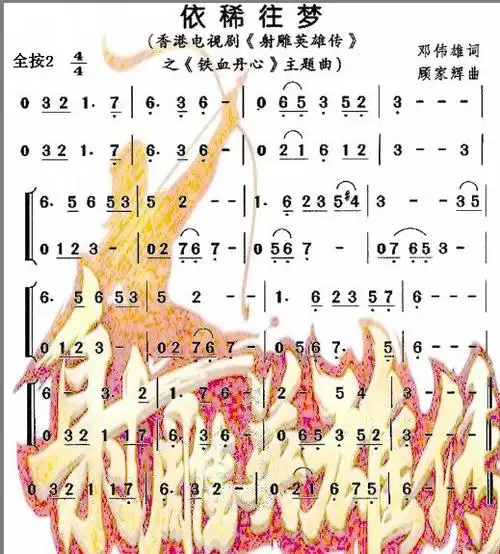 依稀往梦
(香港电视剧《射雕英雄传》
之《铁血丹心》主题曲)
邓伟雄词
顾家辉曲
全按2 4/4
0 3 2 1· 7 | 6· 3 6 - | 0 6 5 3 5 2 | 3 - - - |
0 3 2 1· 7 | 6· 3 6 - | 0 2 1 6 1 2 | 3 - - 3 |
6· 5 6 5 3 | 5 2 - - | 1· 6 2 3 5 #4 | 3 - - 3 5 |
0 1 2 3 - | 0 2 7 6 7 - | 0 5 6 7 - | 0 7 6 5 3 - |
6· 5 6 5 3 | 5 2 - - | 1· 6 2 3 5 7 | 6 - - - |
0 1 2 3 - | 0 2 7 6 7 - | 0 5 6 7· 5 | 6 - - - |
6 - 3 2 | 1· 7 6 - | 2 - 1 2 | 3 - - - |
0 3 2 1 1 7 | 6· 3 6 - | 0 6 5 3 5 2 | 3 - - - |
0 3 2 1 1 7 | 6· 3 6 - | 0 2 1 6 7 5 | 6 - - - |
射雕英雄传